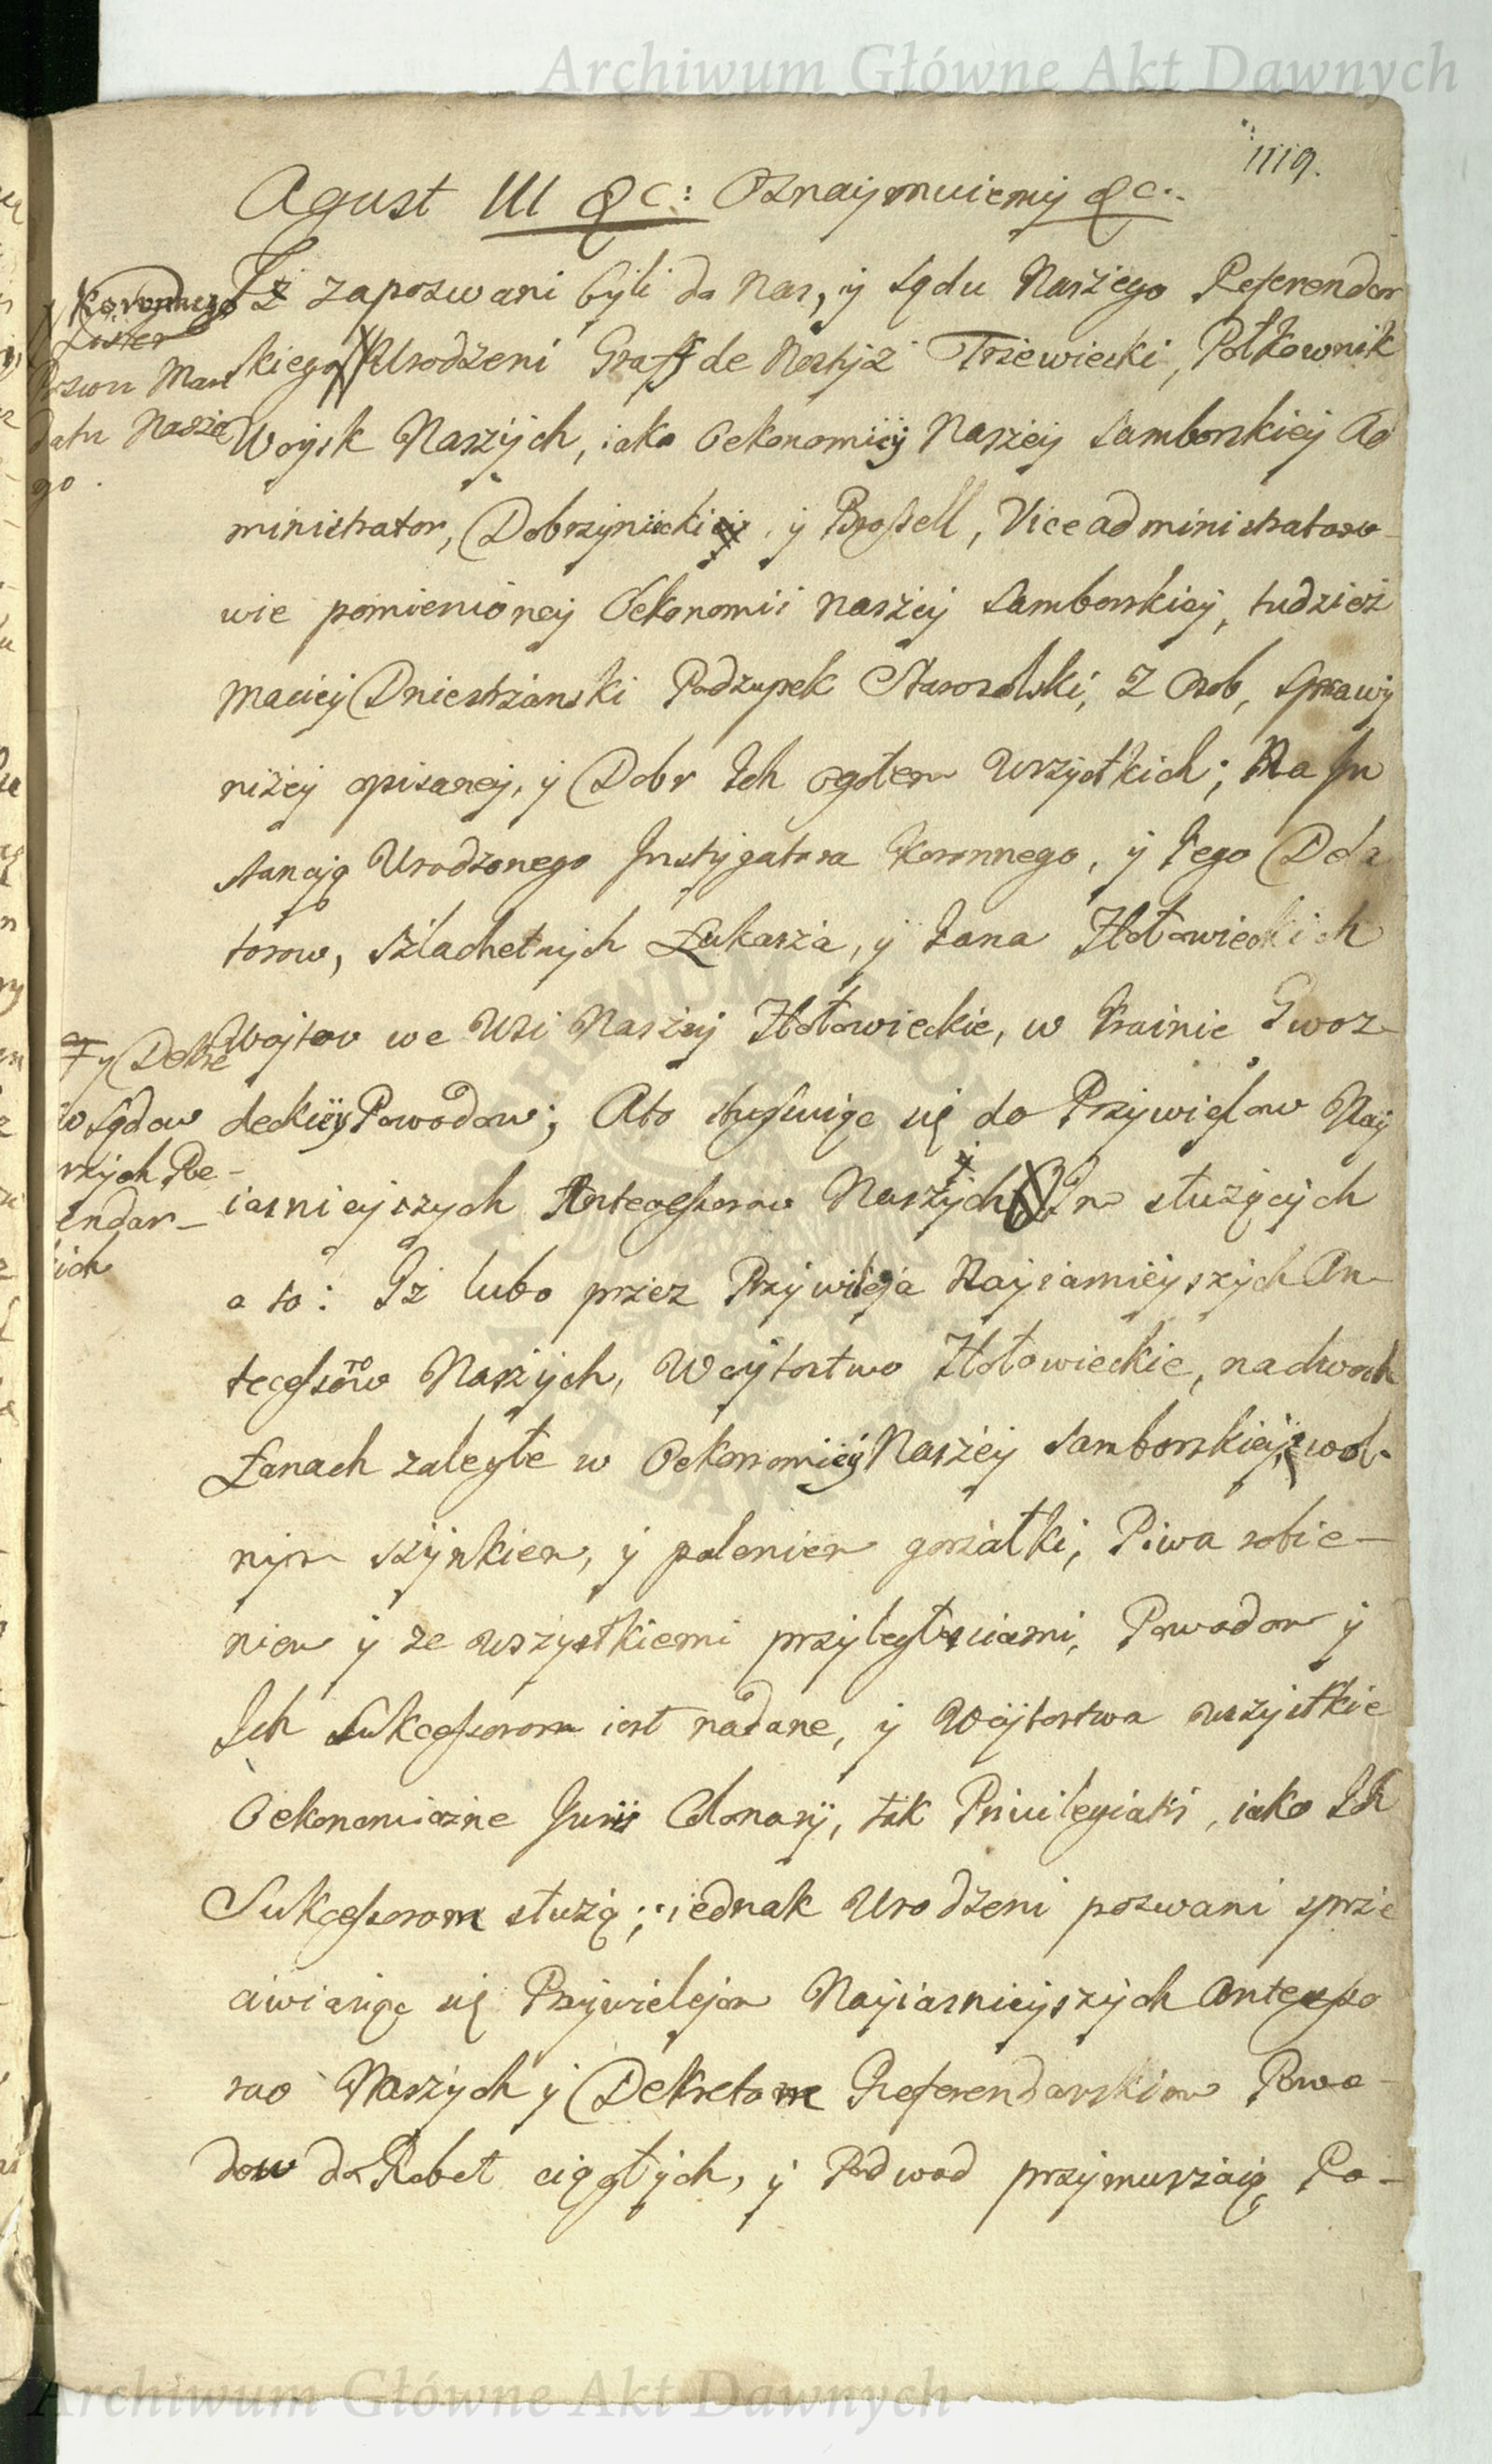 Archiwum Główne Akt Dawnych
1119.
Agust III &c: Oznaymuiemy &c:
Iż zapozwani byli do nas, y sądu Naszego Referendar
skiego Urodzeni Graff de Nostyz Trzewicki, Połkownik
Woysk Naszych, iako Oekonomiiy Naszey Samborskiey Ad
ministrator, Dobrzyniecki y Brossell, Vice administratoro-
wie pomienioney Oekonomii naszey Samborskiey, tudzież
Maciey Dniestrzanski Podżupek Starosolski, z Osob, sprawy
niżey opisaney, y Dobr Ich ogołem wszystkich; Na In
stancyą Urodzonego Instygatora Koronnego, y Iego Dela
torow, Szlachetnych Łukasza, y Iana Hołowieckich
Woytow we Wsi Naszey Hołowieckie, w Krainie Gwoz-
deckiey Powodow; Ato stosuiąc się do Przywielow Nay
iasnieyszych Antecessorow Naszych Im służących
a to: Iż lubo przez Przywileja Nayiasnieyszych An-
tecessorow Naszych, Woytostwo Hołowieckie, na dwoch
Łanach zaległe w Oekonomiiy Naszey Samborskiey, z wol-
nym szynkiem, y paleniem gorzałki, Piwa robie-
niem y ze wszystkiemi przyległosciami, Powodom y
Ich Sukcessorom iest nadane, y Woytostwa wszystkie
Oekonomiczne Iuris Colonarij, tak Privilegiatis, iako Ich
Sukcessorom służą; iednak Urodzeni pozwani sprze
ciwiaiąc się Przywielejom Nayiasnieyszych Antecesso
row Naszych y Dekretom Referendarskim Powo-
dow do Robot ciągłych, y Podwod przymuszaią, Po-
Koronnego
Pozwu Man
datu Nasze
go.
y Dekre
tow sądow
naszych Re-
ferendar-
skich
Archiwum Główne Akt Dawnych